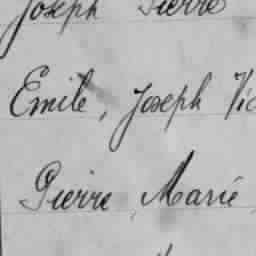 Joseph Pierre
Emile, Joseph Vic
Pierre, Marie,